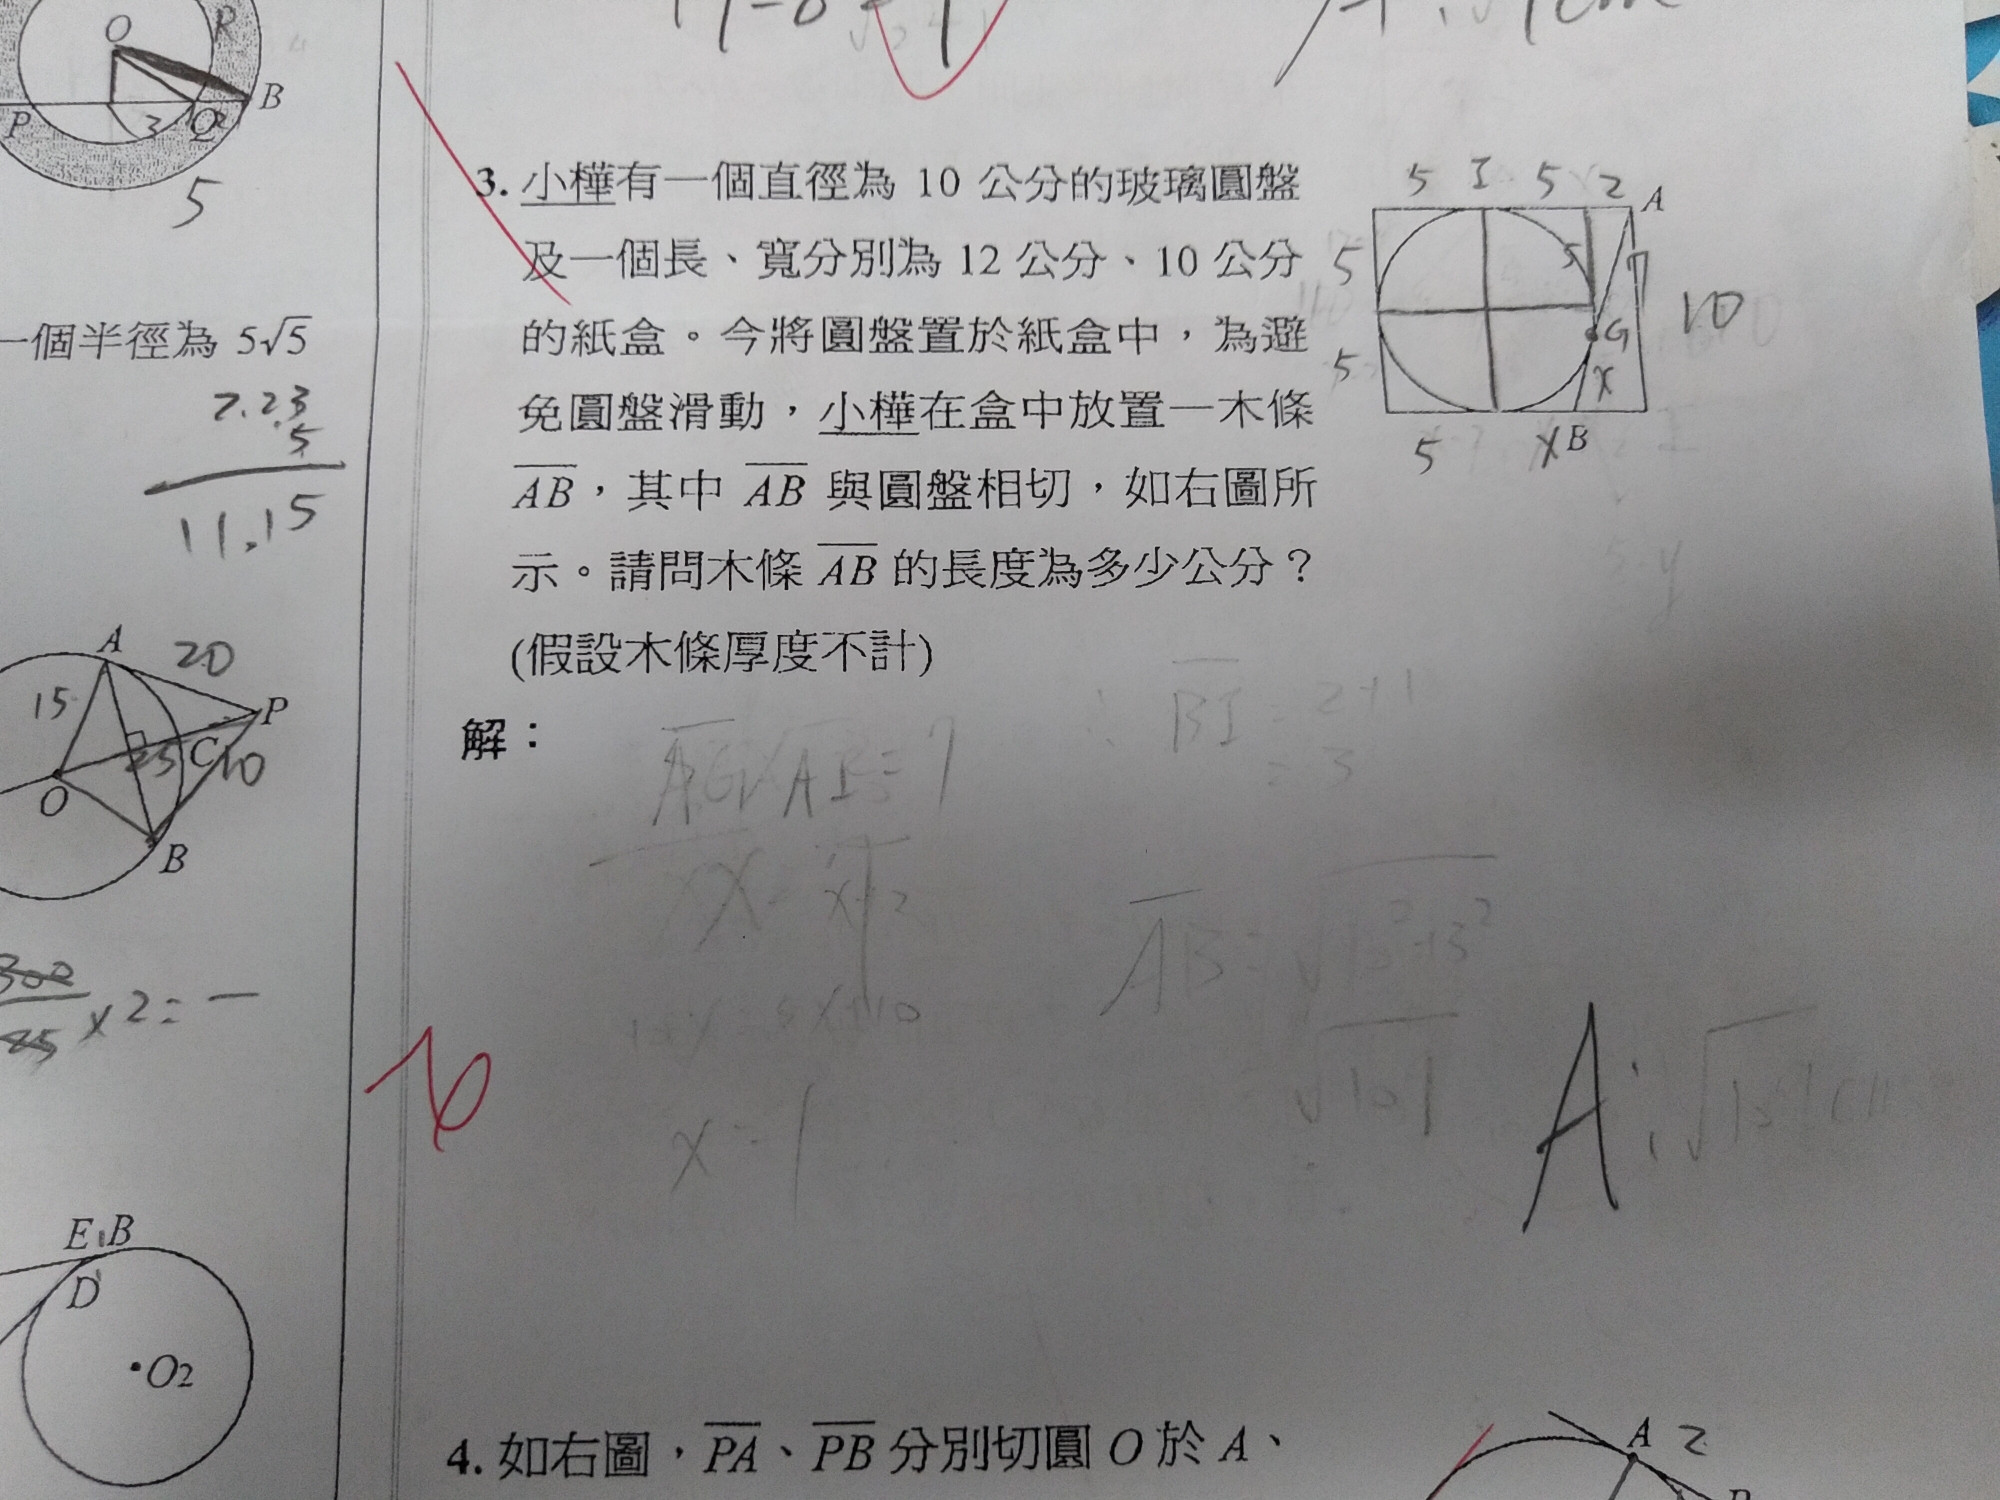 O
R
B
P
Q
3
5
一個半徑為 5√5
2.23
5
11.15
A
20
15
P
25
C
10
O
B
300
25
×2=
E
B
D
O2
3. 小樺有一個直徑為 10 公分的玻璃圓盤
及一個長、寬分別為 12 公分、10 公分
的紙盒。今將圓盤置於紙盒中，為避
免圓盤滑動，小樺在盒中放置一木條
AB，其中 AB 與圓盤相切，如右圖所
示。請問木條 AB 的長度為多少公分？
(假設木條厚度不計)
5 I 5 2 A
5
5
7
10
G
5
x
5 x B
解：
BI = 2+1
= 3
x = 1
√101
A：
4. 如右圖，PA、PB 分別切圓 O 於 A、
A 2